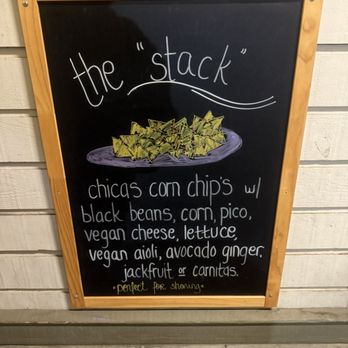 the "stack"
chicas corn chip's w/
black beans, corn, pico,
vegan cheese, lettuce,
vegan aioli, avocado ginger,
jackfruit or carnitas.
*perfect for sharing*